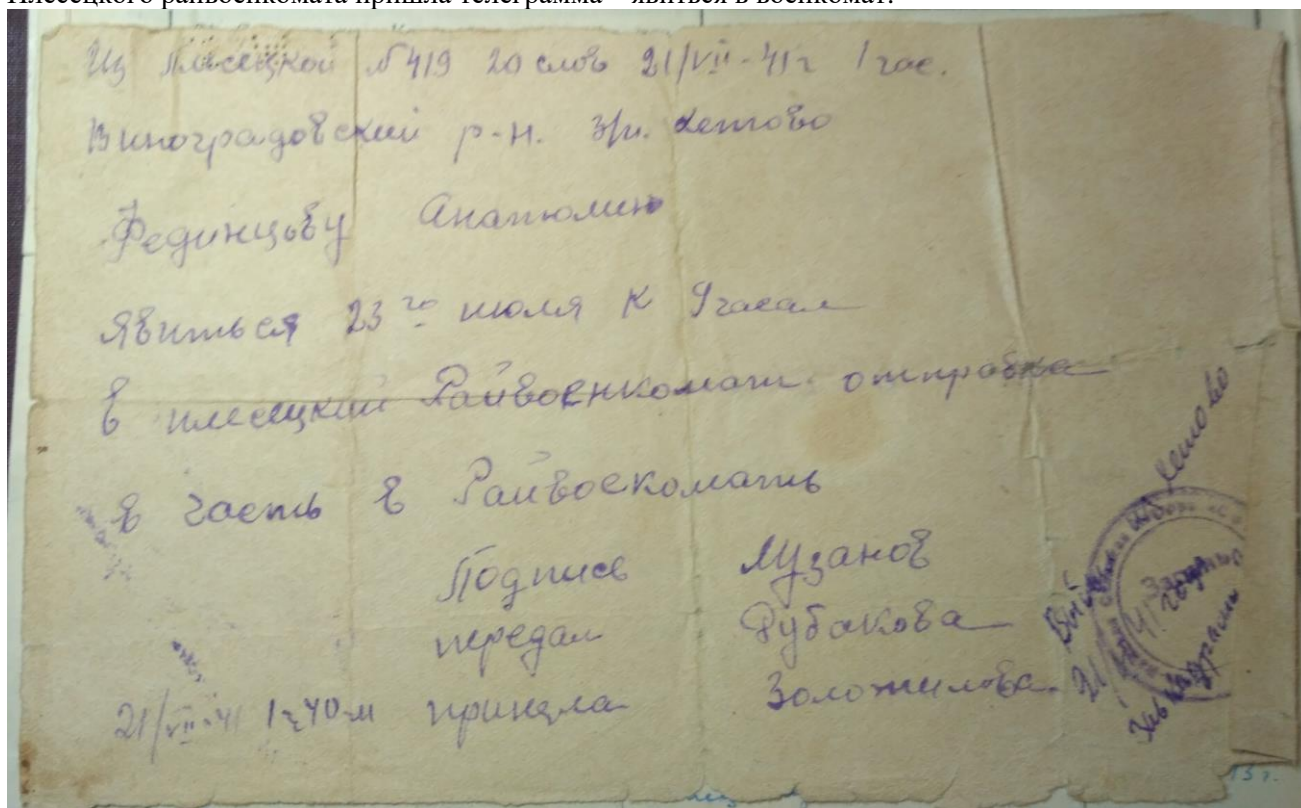 Плесецкого райвоенкомата пришла телеграмма – явиться в военкомат.
Из Плесецкой №419 20 слов 21/VII-41г 1 час.
Виноградовский р-н. з/п.
Фединцьву Анатолию
Явиться 23го июля к 9 часам
в плесецкий Райвоенкомат отправка
в часть в Райвоекомать
Подпись Лузанов
передал Рубакова
21/VII-41 1ч40м приняла Золотилова